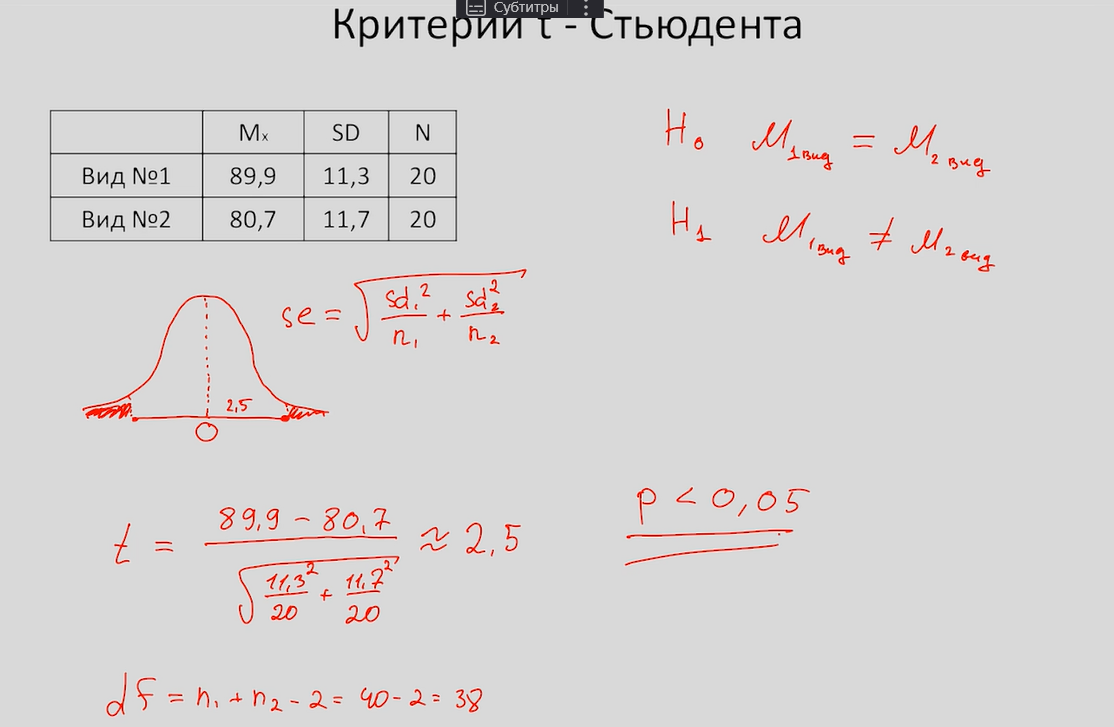 Субтитры
Критерий t - Стьюдента
Mx SD N
Вид №1 89,9 11,3 20
Вид №2 80,7 11,7 20
H₀ M₁ вид = M₂ вид
H₁ M₁ вид ≠ M₂ вид
se = √(sd₁²/n₁ + sd₂²/n₂)
2,5
0
t = (89,9 - 80,7)/√(11,3²/20 + 11,7²/20) ≈ 2,5
p < 0,05
df = n₁ + n₂ - 2 = 40 - 2 = 38